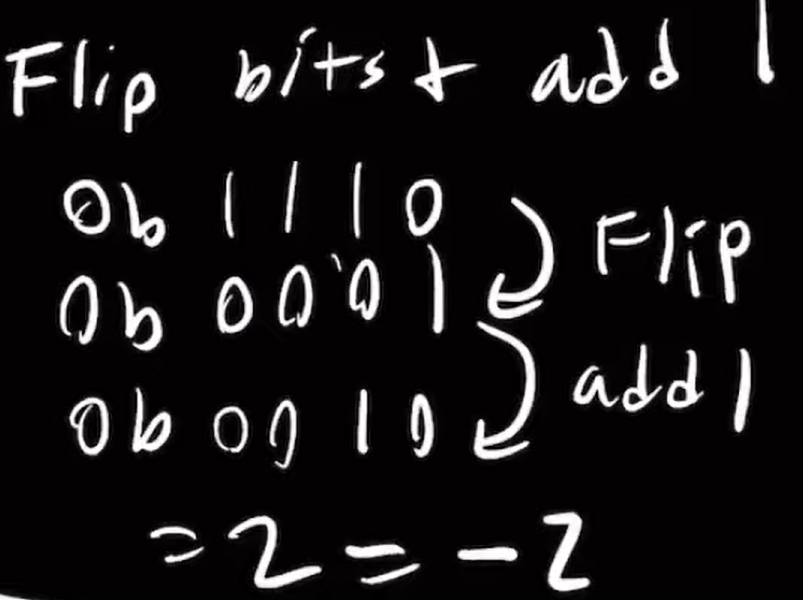 Flip bits + add 1
0b 1110
0b 0001
Flip
add 1
0b 0010
= 2 = -2